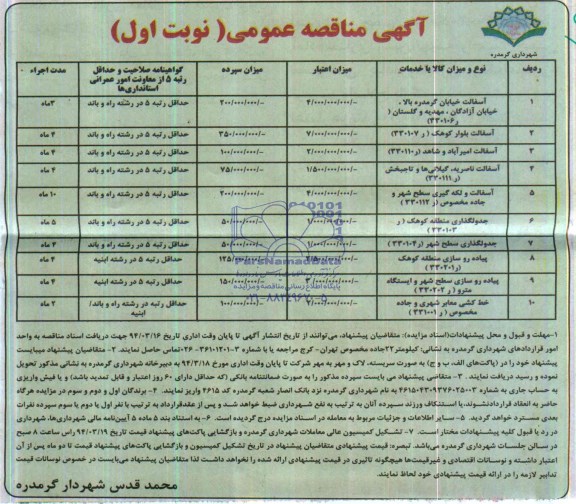 آگهی مناقصه عمومی( نوبت اول)
شهرداری گرمدره
ردیف نوع و میزان کالا یا خدمات میزان اعتبار میزان سپرده گواهینامه صلاحیت و حداقل رتبه ۵ از معاونت امور عمرانی استانداریها مدت اجراء
۱ آسفالت خیابان گرمدره بالا ، خیابان آزادگان ، مهدیه و گلستان ( ر۳۳۰۱۰۶) ۴/۰۰۰/۰۰۰/۰۰۰/- ۲۰۰/۰۰۰/۰۰۰/- حداقل رتبه ۵ در رشته راه و باند ۳ماه
۲ آسفالت بلوار کوهک ( ر ۳۳۰۱۰۷) ۷/۰۰۰/۰۰۰/۰۰۰/- ۳۵۰/۰۰۰/۰۰۰/- حداقل رتبه ۵ در رشته راه و باند ۴ ماه
۳ آسفالت امیرآباد و شاهد (ر۳۳۰۱۱۰) ۲/۰۰۰/۰۰۰/۰۰۰/- ۱۰۰/۰۰۰/۰۰۰/- حداقل رتبه ۵ در رشته راه و باند ۳ ماه
۴ آسفالت ناصریه، گیلانی‌ها و تاجبخش (ر ۳۳۰۱۱۱) ۱/۵۰۰/۰۰۰/۰۰۰/- ۷۵/۰۰۰/۰۰۰/- حداقل رتبه ۵ در رشته راه و باند ۴ ماه
۵ آسفالت و لکه گیری سطح شهر و جاده مخصوص (ر ۳۳۰۱۱۲ ) ۴/۰۰۰/۰۰۰/۰۰۰/- ۲۰۰/۰۰۰/۰۰۰/- حداقل رتبه ۵ در رشته راه و باند ۱۰ ماه
۶ جدولگذاری منطقه کوهک ( ر ۳۳۰۱۰۳) ۱/۰۰۰/۰۰۰/۰۰۰/- ۵۰/۰۰۰/۰۰۰/- حداقل رتبه ۵ در رشته راه و باند ۵ ماه
۷ جدولگذاری سطح شهر (ر۳۳۰۱۰۴) ۱/۰۰۰/۰۰۰/۰۰۰/- ۵۰/۰۰۰/۰۰۰/- حداقل رتبه ۵ در رشته راه و باند ۴ ماه
۸ پیاده رو سازی منطقه کوهک (ر۳۳۰۲۰۱) ۲/۵۰۰/۰۰۰/۰۰۰/- ۱۲۵/۰۰۰/۰۰۰/- حداقل رتبه ۵ در رشته ابنیه ۴ ماه
۹ پیاده رو سازی سطح شهر و ایستگاه مترو ( ر ۳۳۰۲۰۲) ۳/۰۰۰/۰۰۰/۰۰۰/- ۱۵۰/۰۰۰/۰۰۰/- حداقل رتبه ۵ در رشته ابنیه ۴ ماه
۱۰ خط کشی معابر شهری و جاده مخصوص ( ر ۳۳۱۰۰۱) ۲/۰۰۰/۰۰۰/۰۰۰/- ۱۰۰/۰۰۰/۰۰۰/- حداقل رتبه ۵ در رشته راه و باند/ ابنیه ۲ ماه
ParsNamadData
پایگاه اطلاع رسانی مناقصه و مزایده
۰۲۱-۸۸۳۴۹۶۷۰-۵
۱-مهلت و قبول و محل پیشنهادات(اسناد مزایده): متقاضیان پیشنهاد، می‌توانند از تاریخ انتشار آگهی تا پایان وقت اداری تاریخ ۹۴/۰۳/۱۶ جهت دریافت اسناد مناقصه به واحد
امور قراردادهای شهرداری گرمدره به نشانی: کیلومتر ۲۲جاده مخصوص تهران- کرج مراجعه یا با شماره ۳-۳۶۱۰۱۲۰۱-۰۲۶تماس حاصل نمایند. ۲- متقاضیان پیشنهاد میبایست
پیشنهاد خود را در (پاکت‌های الف، ب و ج) به صورت سربسته، لاک و مهر به مهر شرکت تا پایان وقت اداری مورخ ۹۴/۳/۱۸ به دبیرخانه شهرداری گرمدره به نشانی مذکور تحویل
نموده و رسید دریافت نمایند. ۳- متقاضی پیشنهاد می بایست سپرده مذکور را به صورت ضمانتنامه بانکی (که حداقل دارای ۶۰ روز اعتبار و قابل تمدید باشد) و یا فیش واریزی
به حساب جاری به شماره نام شهرداری گرمدره نزد بانک انصار شعبه گرمدره کد ۴۶۱۵ واریز نمایند. ۴- برندگان اول و دوم و سوم در مزایده هرگاه
حاضر به انعقاد قراردادنشوند، یا استنکاف ورزند سپرده آنان به ترتیب به نفع شهرداری ضبط خواهد شد و پس از عقدقرارداد به ترتیب با نفر اول یا دوم یا سوم سپرده نفرات
بعدی مسترد خواهد گردید. ۵- سایر اطلاعات و جزئیات مربوط به معامله در اسناد مزایده درج گردیده است. ۶- به استناد بند ۵ ماده ۵ آیین‌نامه مالی شهرداری‌ها، شهرداری
در رد یا قبول کلیه پیشنهادات مختار است. ۷- تشکیل کمیسیون عالی معاملات شهرداری گرمدره و بازگشایی پاکت‌های پیشنهاد قیمت تاریخ ۹۴/۰۳/۱۹ راس ساعت ۸ صبح
در سالن جلسات شهرداری گرمدره می‌باشد. تبصره: قیمت پیشنهادی متقاضیان پیشنهاد در تاریخ تشکیل کمیسیون و بازگشایی پاکت‌های پیشنهاد قیمت تا دو ماه پس از آن
اعتبار داشته و نوسانات اقتصادی و غیرقیمت‌ها هیچگونه تاثیری در قیمت پیشنهادی ارائه شده را نخواهد داشت لذا متقاضیان پیشنهاد می‌بایست در خصوص نوسانات قیمت
تدابیر لازمه را در ارائه قیمت پیشنهادی خود لحاظ نمایند.
محمد قدس شهردار گرمدره